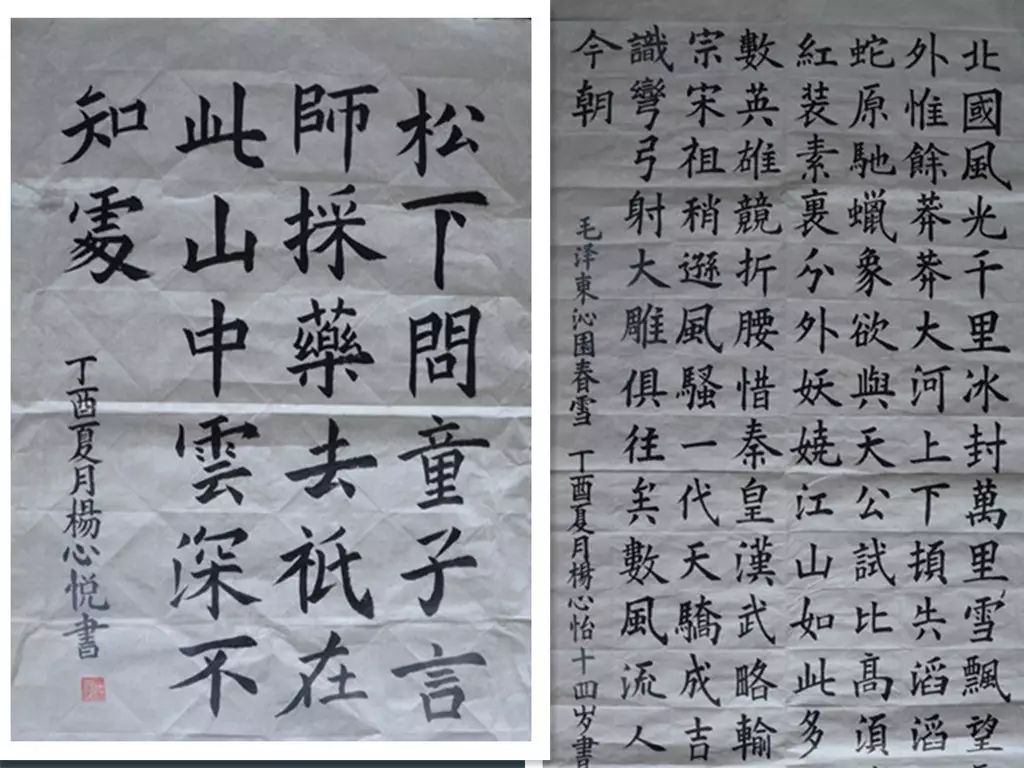 松下問童子言
師採藥去祇在
此山中雲深不
知處
丁酉夏月楊心悦書
北國風光千里冰封萬里雪飄望
外惟餘莽莽大河上下頓失滔滔
蛇原馳蠟象欲與天公試比高須
紅装素裹分外妖嬈江山如此多
數英雄競折腰惜秦皇漢武略輸
宗宋祖稍遜風騷一代天驕成吉
識彎弓射大雕俱往矣數風流人
今朝
毛泽東沁園春雪 丁酉夏月楊心怡十四岁書